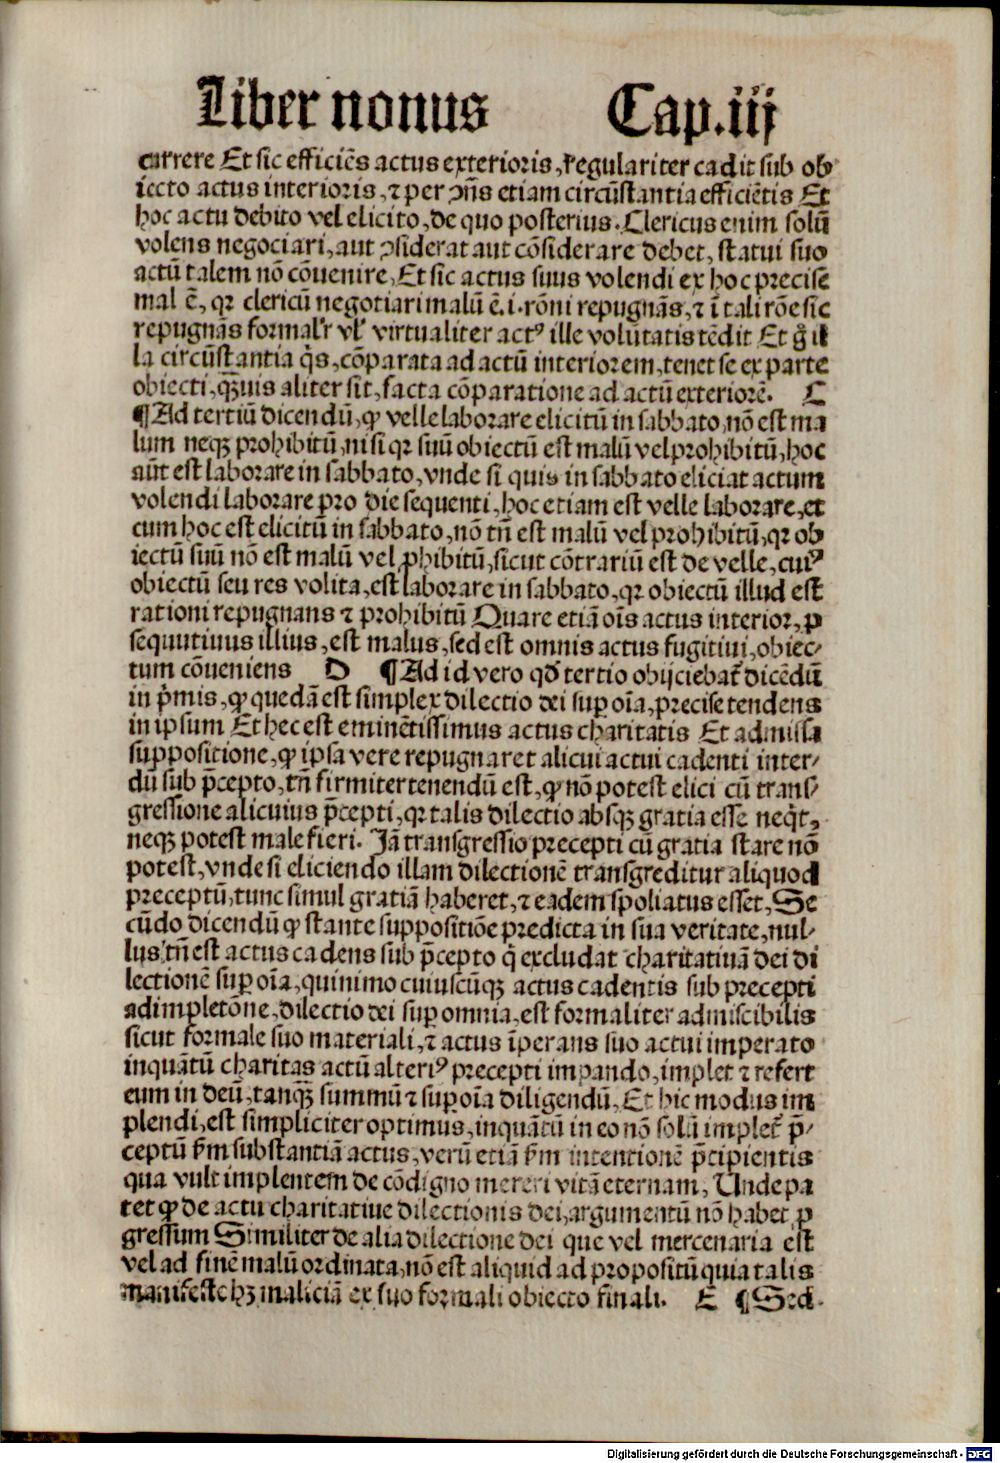 Liber nonus Cap.iij
currere Et sic efficiẽs actus exterioris, regulariter cadit sub ob
iecto actus interioris, ⁊ per ↄñs etiam circũstantia efficiẽtis Et
hoc actu debito vel elicito, de quo posterius. Clericus enim solũ
volens negociari, aut ↄsiderat aut cõsiderare debet, statui suo
actũ talem nõ cõuenire, Et sic actus suus volendi ex hoc precise
mal ẽ, qꝛ clericũ negotiari malũ ẽ .i. rõni repugnãs, ⁊ ĩ tali rõe sic
repugnãs formalr̃ vl̕ virtualiter actꝰ ille volũtatis tẽdit Et g̃ il
la circũstantia q̃s, cõparata ad actũ interiorem, tenet se ex parte
obiecti, qꝫuis aliter sit, facta cõparatione ad actũ exteriorẽ. C
¶Ad tertiũ dicendũ, ꝙ velle laborare elicitũ in sabbato, nõ est ma
lum neqꝫ prohibitũ, nisi qꝛ suũ obiectũ est malũ vel prohibitũ, hoc
aũt est laborare in sabbato, vnde si quis in sabbato eliciat actum
volendi laborare pro die sequenti, hoc etiam est velle laborare, et
cum hoc est elicitũ in sabbato, nõ tñ est malũ vel prohibitũ, qꝛ ob
iectũ suũ nõ est malũ vel ꝓhibitũ, sicut cõtrariũ est de velle, cuiꝰ
obiectũ seu res volita, est laborare in sabbato, qꝛ obiectũ illud est
rationi repugnans ⁊ prohibitũ Quare etiã oĩs actus interior, ꝓ
sequutiuus illius, est malus, sed est omnis actus fugitiui, obiec-
tum cõueniens D ¶Ad id vero qđ tertio obijciebat̃ dicẽdũ
in p̃mis, ꝙ quedã est simplex dilectio dei suꝑ oĩa, precise tendens
in ipsum Et hec est eminẽtissimus actus charitatis Et admissa
suppositione, ꝙ ipsa vere repugnaret alicui actui cadenti inter-
dũ sub p̃cepto, tñ firmiter tenendũ est, ꝙ nõ potest elici cũ trans-
gressione alicuius p̃cepti, qꝛ talis dilectio absqꝫ gratia esse neq̃t,
neqꝫ potest male fieri. Iã transgressio precepti cũ gratia stare nõ
potest, vnde si eliciendo illam dilectionẽ transgreditur aliquod
preceptũ, tunc simul gratiã haberet, ⁊ eadem spoliatus esset, Se
cũdo dicendũ ꝙ stante suppositiõe predicta in sua veritate, nul-
lus tñ est actus cadens sub p̃cepto q̃ excludat charitatiuã dei di
lectionẽ suꝑ oĩa, quinimo cuiuscũqꝫ actus cadentis sub precepti
adimpletõne, dilectio dei suꝑ omnia, est formaliter admiscibilis
sicut formale suo materiali, ⁊ actus ĩperans suo actui imperato
inquãtũ charitas actũ alteriꝰ precepti imꝑando, implet ⁊ refert
eum in deũ, tanqꝫ summũ ⁊ suꝑ oĩa diligendũ, Et hic modus im
plendi, est simpliciter optimus, inquãtũ in eo nõ solũ implet̃ p̃-
ceptũ ẜm substantiã actus, verũ etiã ẜm intentionẽ p̃cipientis
qua vult implentem de cõdigno mereri vitã eternam, Unde pa
tet ꝙ de actu charitatiue dilectionis dei, argumentũ nõ habet ꝓ
gressum Similiter de alia dilectione dei que vel mercenaria est
vel ad finẽ malũ ordinata, nõ est aliquid ad propositũ quia talis
manifeste hꝫ maliciã ex suo formali obiecto finali. E ¶Sed
Digitalisierung gefördert durch die Deutsche Forschungsgemeinschaft - DFG